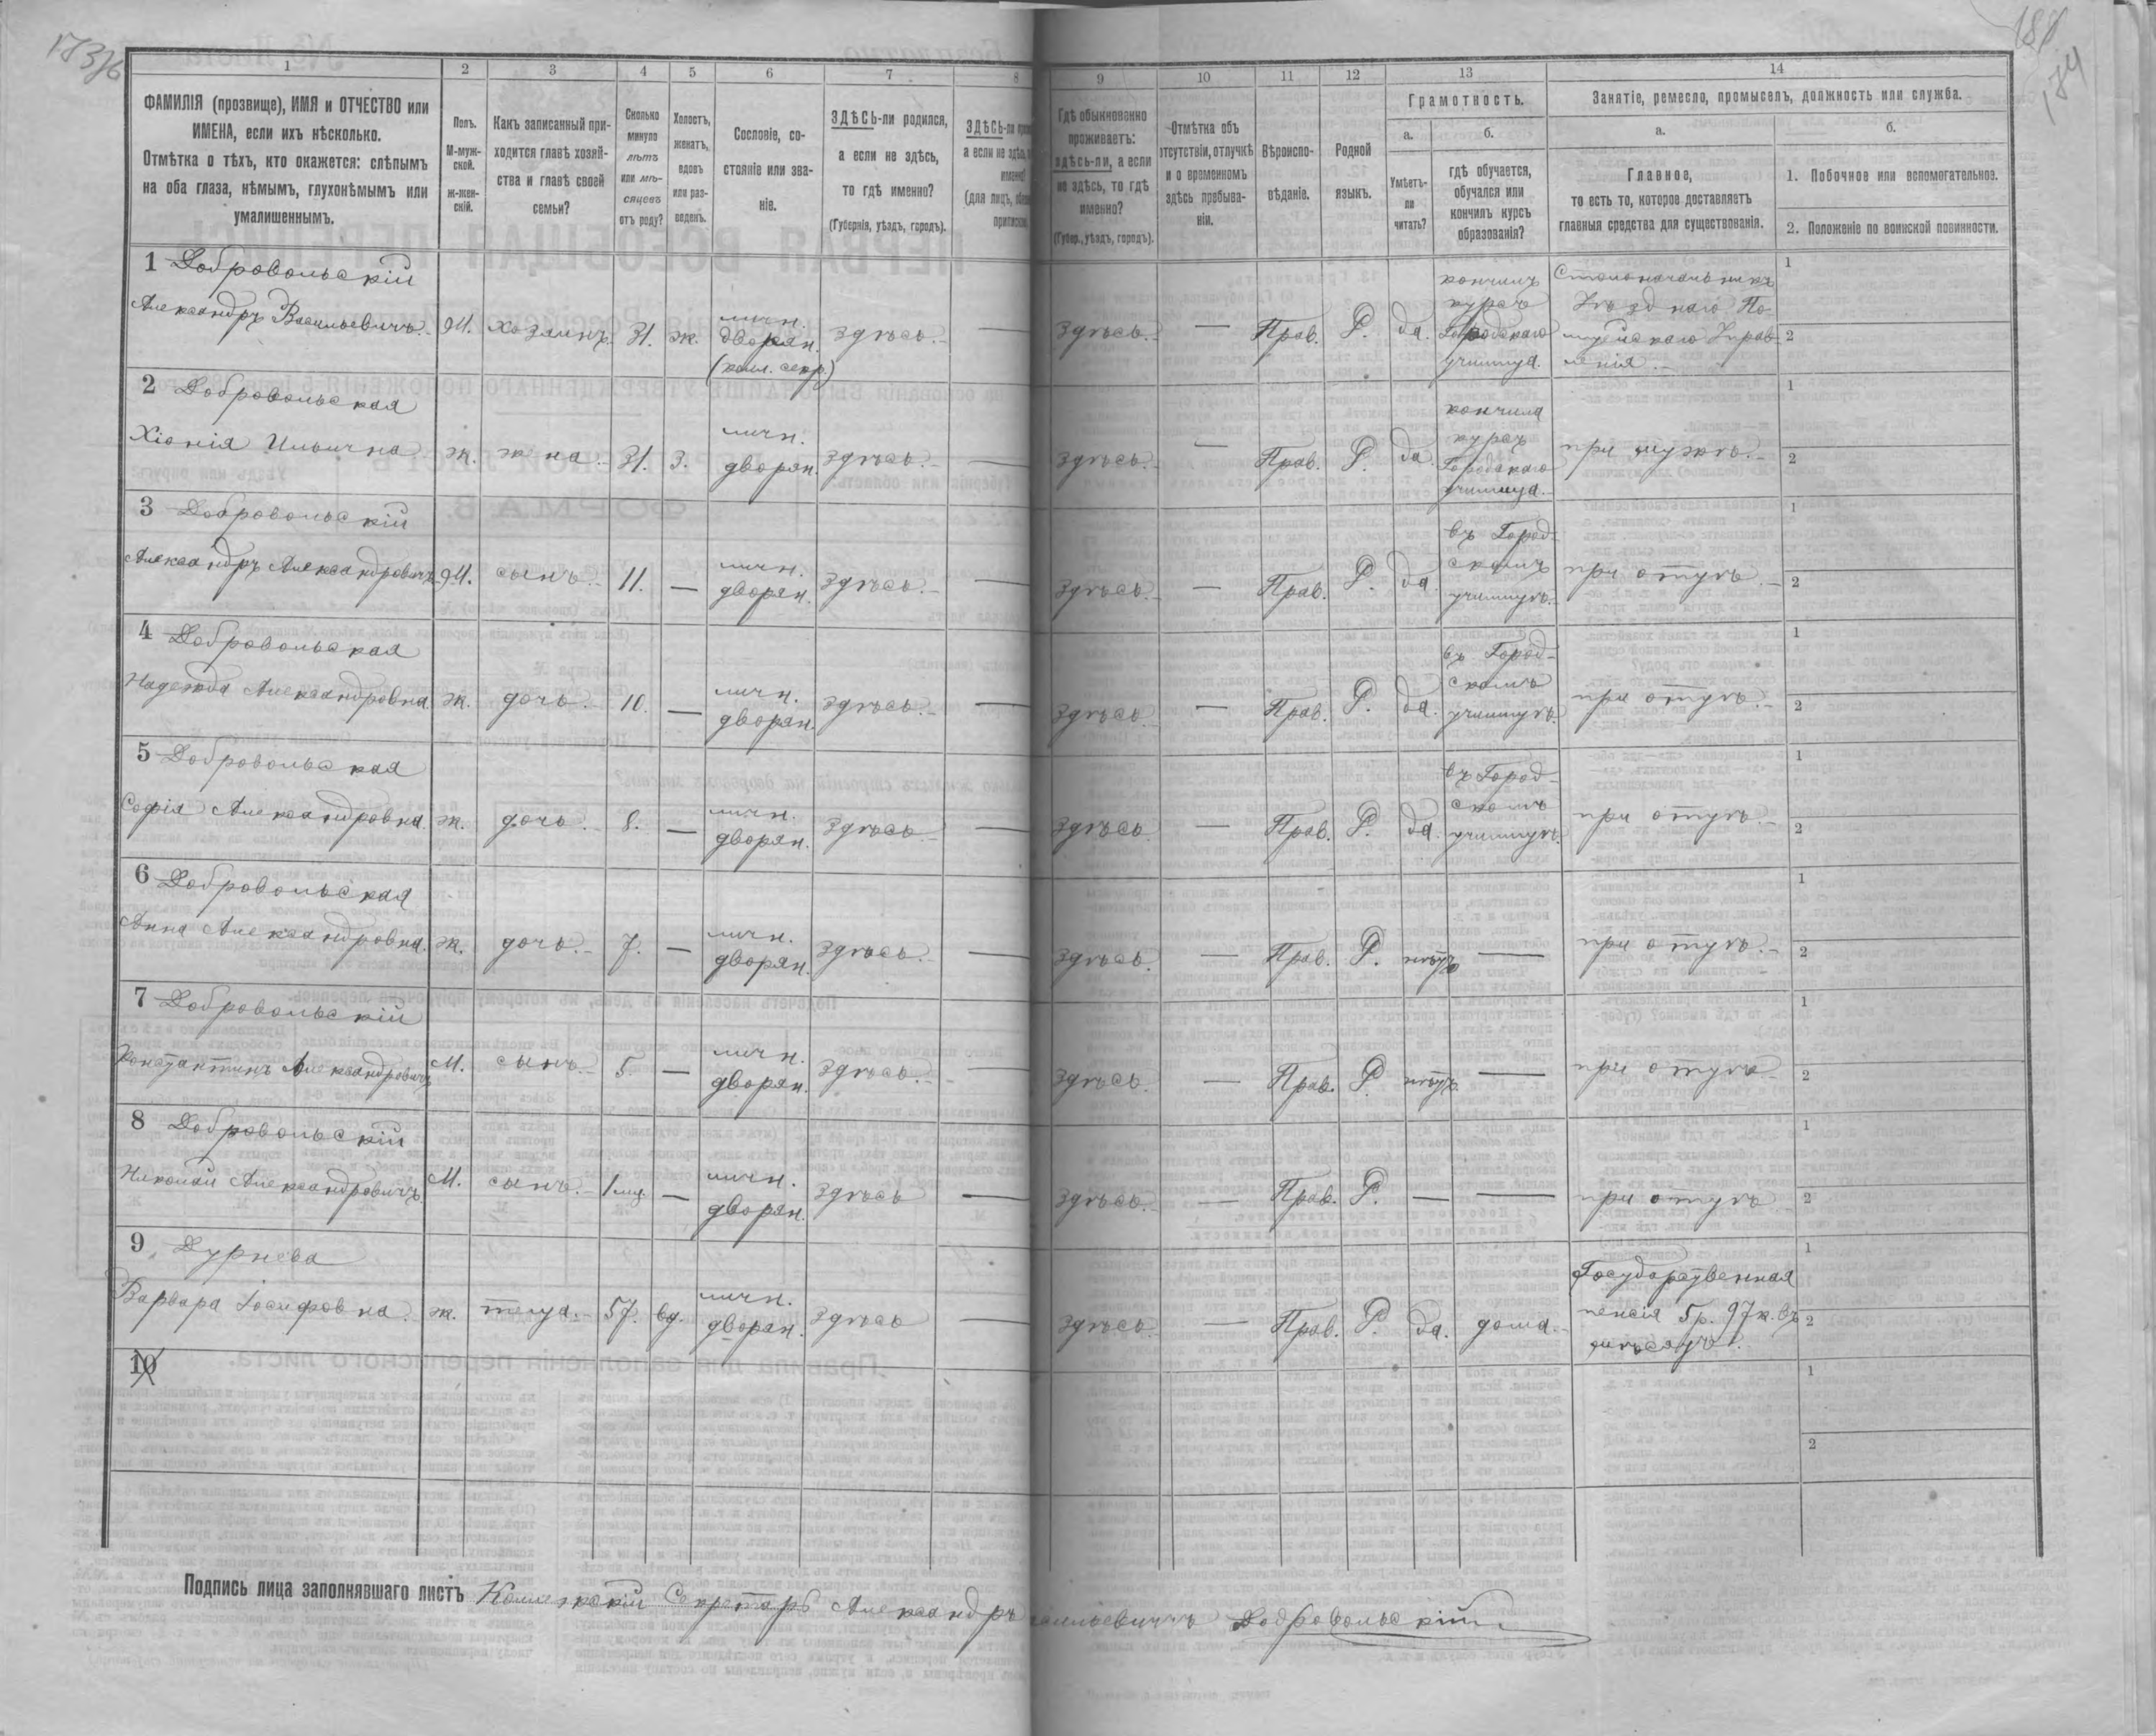 173/6
184
1 2 3 4 5 6 7 8 9 10 11 12 13 14
ФАМИЛІЯ (прозвище), ИМЯ и ОТЧЕСТВО или
ИМЕНА, если ихъ нѣсколько.
Отмѣтка о тѣхъ, кто окажется: слѣпымъ
на оба глаза, нѣмымъ, глухонѣмымъ или
умалишеннымъ.
Полъ.
М-муж-
ской.
ж-жен-
скій.
Какъ записанный при-
ходится главѣ хозяй-
ства и главѣ своей
семьи?
Сколько
минуло
лѣтъ
или мѣ-
сяцевъ
отъ роду?
Холостъ,
женатъ,
вдовъ
или раз-
веденъ.
Сословіе, со-
стояніе или зва-
ніе.
ЗДѢСЬ-ли родился,
а если не здѣсь,
то гдѣ именно?
(Губернія, уѣздъ, городъ).
ЗДѢСЬ-ли
а если не здѣсь,
именно?
(для лицъ,
Гдѣ обыкновенно
проживаетъ:
здѣсь-ли, а если
не здѣсь, то гдѣ
именно?
(Губер., уѣздъ, городъ).
Отмѣтка объ
отсутствіи, отлучкѣ
и о временномъ
здѣсь пребыва-
ніи.
Вѣроиспо-
вѣданіе.
Родной
языкъ.
Грамотность.
а.
Умѣетъ-
ли
читать?
б.
гдѣ обучается,
обучался или
кончилъ курсъ
образованія?
Занятіе, ремесло, промыселъ, должность или служба.
а.
Главное,
то есть то, которое доставляетъ
главныя средства для существованія.
б.
1. Побочное или вспомогательное.
2. Положеніе по воинской повинности.
1 Добровольскій
Александръ Васильевичъ. М. хозяинъ. 31. ж. личн. дворян. (колл. секр.) здѣсь. — здѣсь. — Прав. Р. да. кончилъ курсъ Городскаго училища. Столоначальникъ Уѣзднаго По
лицейскаго Управ
ленія.
1
2
2 Добровольская
Хіонія Ильинична ж. жена. 31. З. личн. дворян. здѣсь. — здѣсь. — Прав. Р. да. кончила курсъ Городскаго училища. при мужѣ.
1
2
3 Добровольскій
Александръ Александровичъ М. сынъ. 11. — личн. дворян. здѣсь. — здѣсь. — Прав. Р. да въ Город-
скомъ
училищѣ. при отцѣ.
1
2
4 Добровольская
Надежда Александровна ж. дочь. 10. — личн. дворян. здѣсь. — здѣсь — Прав. Р. да. въ Город-
скомъ
училищѣ. при отцѣ.
1
2
5 Добровольская
Софія Александровна. ж. дочь. 8. — личн. дворян. здѣсь. — здѣсь — Прав. Р. да. въ Город-
скомъ
училищѣ. при отцѣ.
1
2
6 Добровольская
Анна Александровна. ж. дочь. 7. — личн. дворян. здѣсь. — здѣсь. — Прав. Р. нѣтъ — при отцѣ.
1
2
7 Добровольскій
Константинъ Александровичъ М. сынъ. 5. — личн. дворян. здѣсь. — здѣсь. — Прав. Р нѣтъ. — при отцѣ
1
2
8 Добровольскій
Николай Александровичъ. М. сынъ. 1 мѣс. — личн. дворян. здѣсь — здѣсь. — Прав. Р. — — при отцѣ
1
2
9 Дурнева
Варвара Іосифовна. ж. теща. 57. вд. личн. дворян. здѣсь — здѣсь. — Прав. Р. да. дома. Государственная
пенсія 5 р. 97 к. въ
мѣсяцъ.
1
2
10
1
2
Подпись лица заполнявшаго листъ Коллежскій Секретарь Александръ Васильевичъ Добровольскій